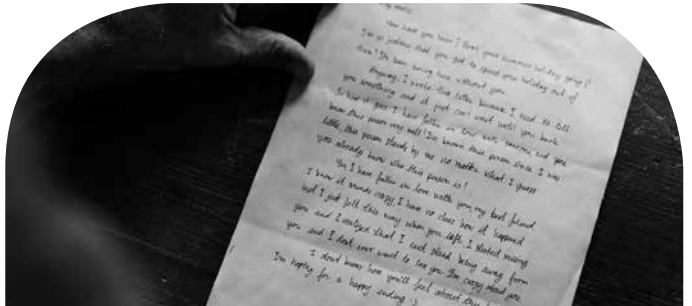 How have you been? How's your summer holiday going?
I'm so jealous that you got to spend your holiday out of
town! It's been boring here without you.
Anyway, I wrote this letter because I need to tell
you something and it just can't wait until you're back.
So here it goes, I have fallen in love with someone and you
know this person very well! I've known this person since I was
little, this person stands by me no matter what. I guess
you already know who this person is!
Yes, I have fallen in love with you, my best friend.
I know it sounds crazy, I have no clue how it happened
but I just felt this way when you left. I started missing
you and I realized that I can't stand being away from
you and I don't ever want to lose you. I'm crazy about you.
I don't know how you'll feel about this
I'm hoping for a happy ending :)